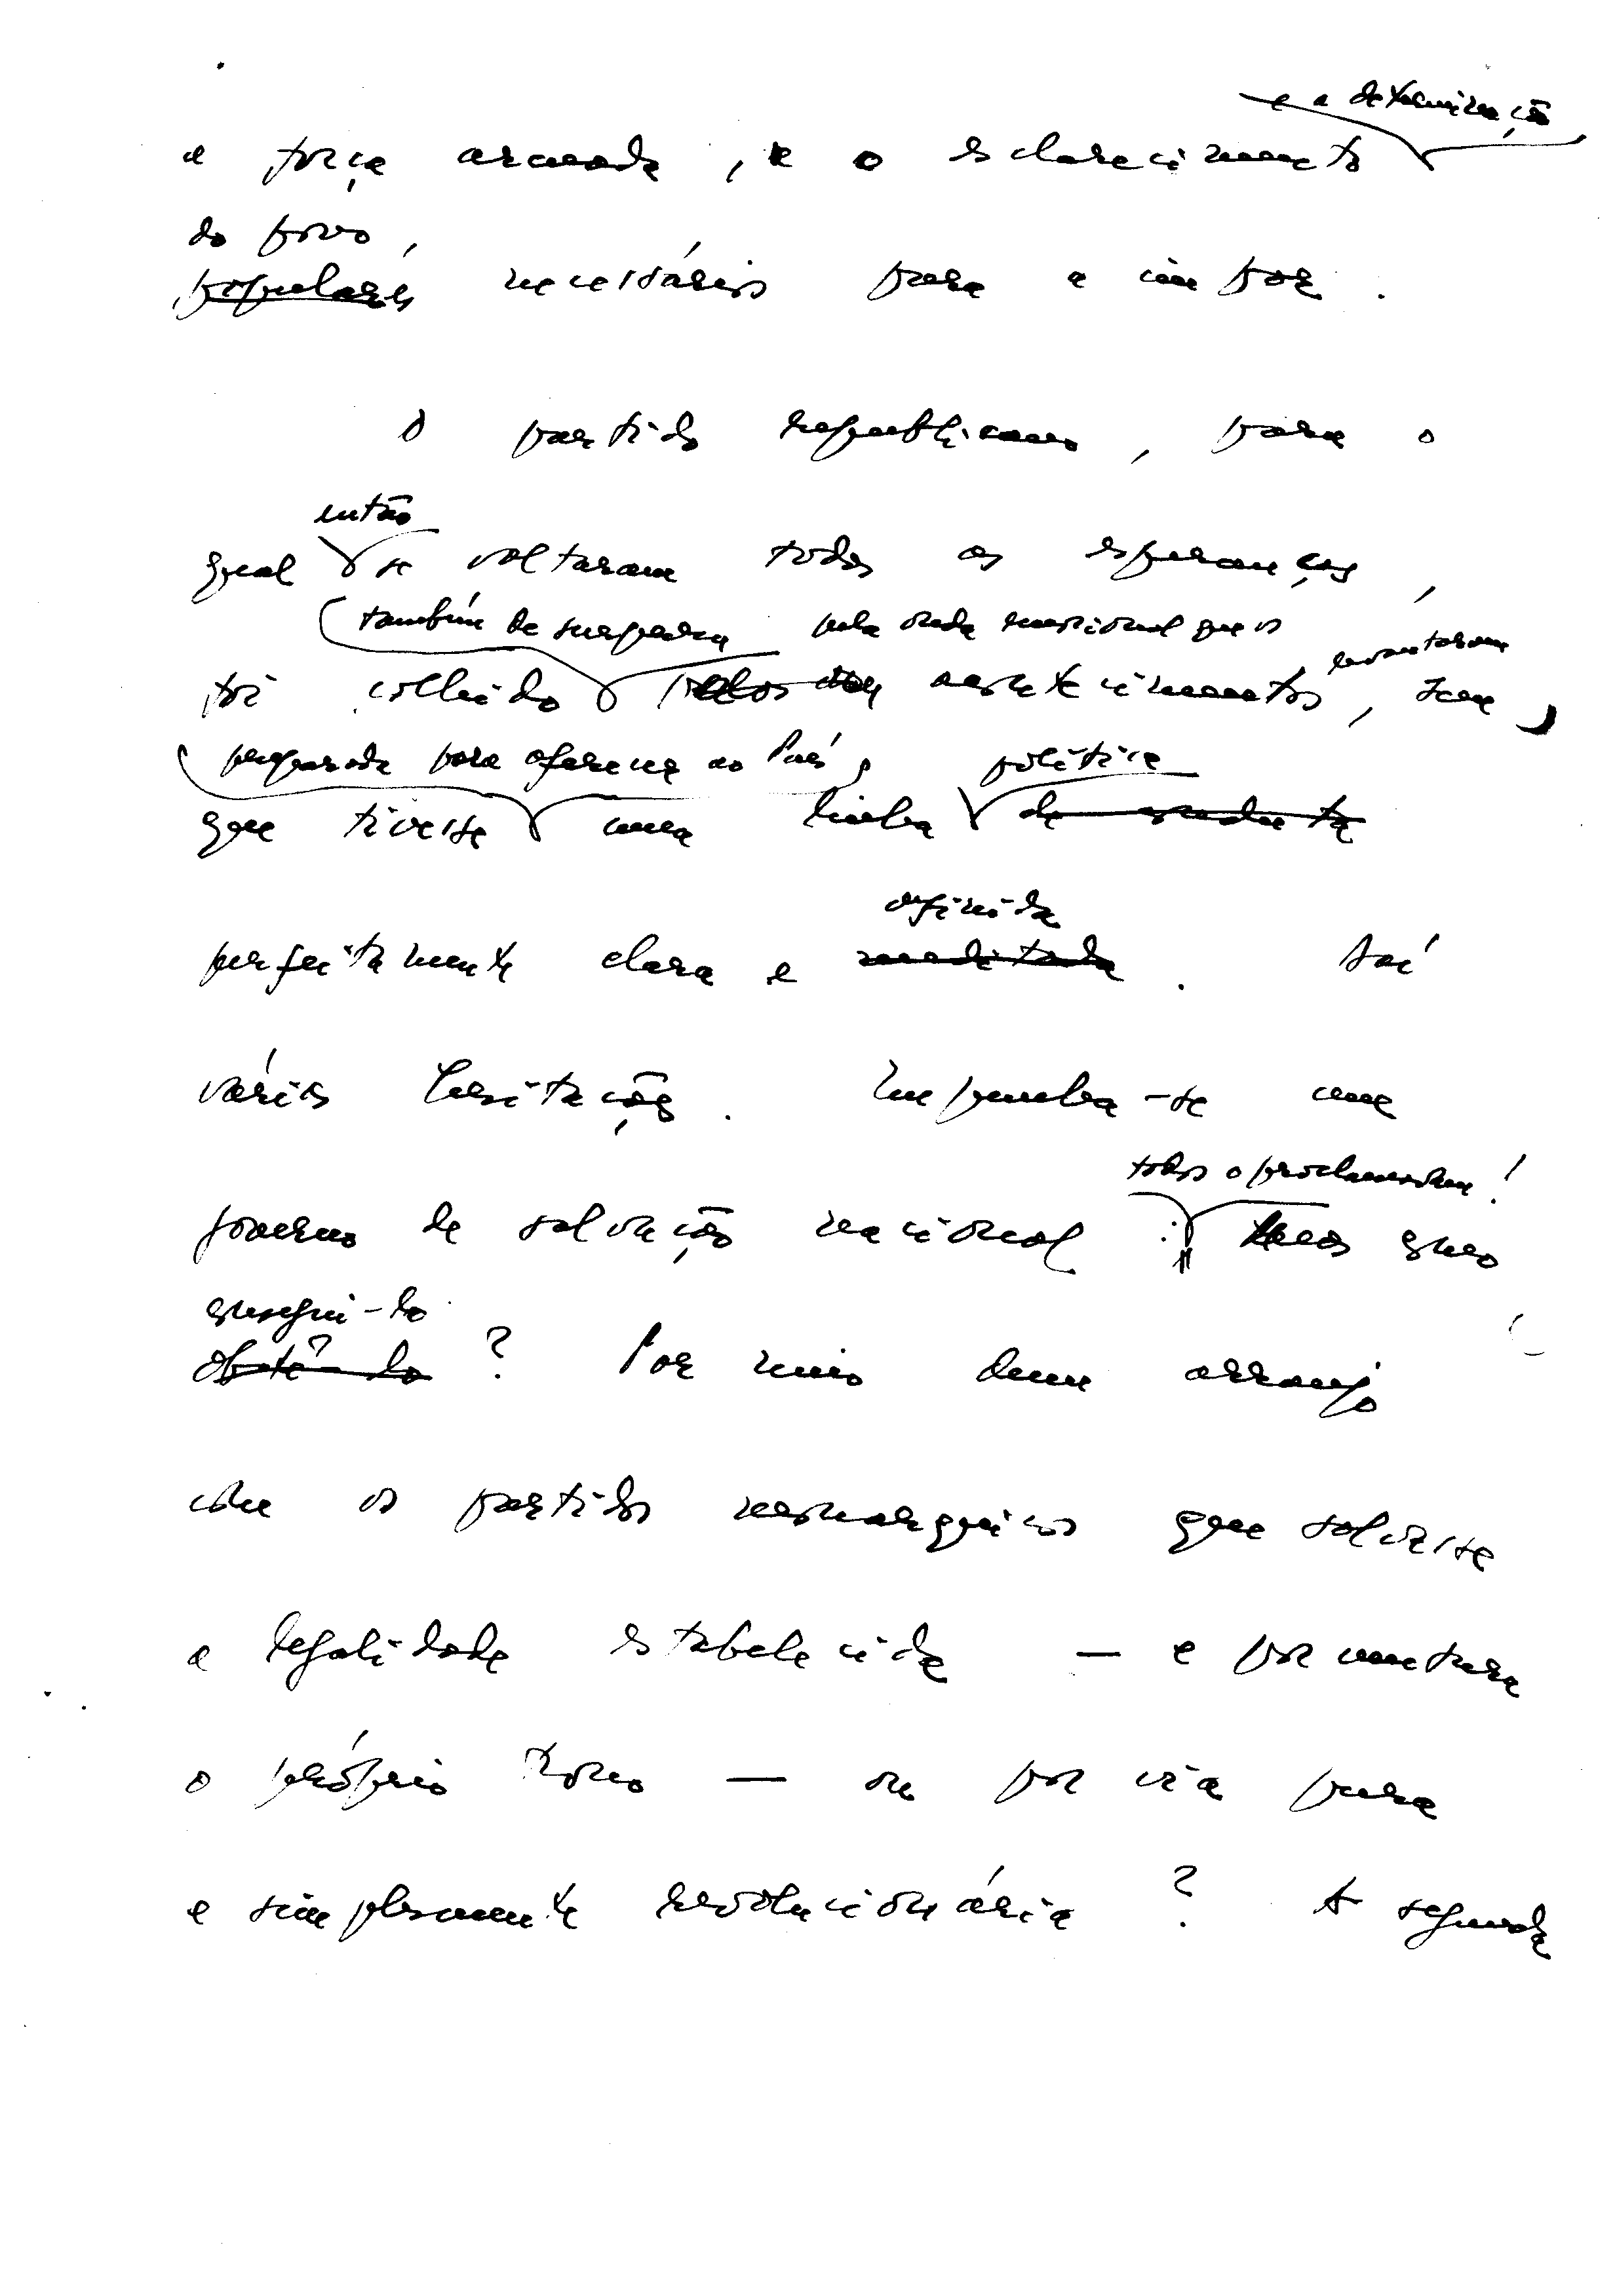 e a determinação
a força armada, e o esclarecimento
do povo,
populares necessários para a impor.
O partido republicano, para o
então
qual se voltaram todas as esperanças,
também de surpresa pela onda emocional que os
levantaram
foi colhido pelos acontecimentos, sem
preparada para oferecer ao País,
política
que tivesse uma linha de conduta
definida
perfeitamente clara e meditada. Daí
várias hesitações. Impunha-se um
todos o proclamavam!
governo de salvação nacional: Mas como
consegui-lo
obtê-lo? Por meio dum arranjo
com os partidos monárquicos que salvasse
a legalidade estabelecida — e porventura
o próprio trono — ou por via pura
e simplesmente revolucionária? A segunda